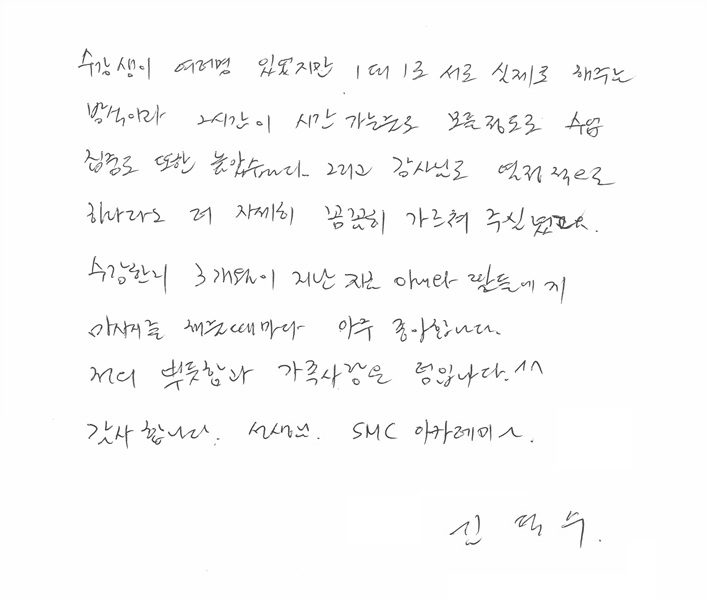 수강생이 여러명 있었지만 1대1로 서로 실제로 해주는
방식이라 2시간이 시간 가는줄도 모를정도로 수업
집중도 또한 높았습니다. 그리고 강사님도 열정적으로
하나라도 더 자세히 꼼꼼히 가르쳐 주십니다.
수강한지 3개월이 지난 지금 아내와 딸들에게
마사지를 해줄때마다 아주 좋아합니다.
저의 뿌듯함과 가족사랑은 덤입니다.^^
감사합니다. 선생님. SMC 아카데미.
신덕수.